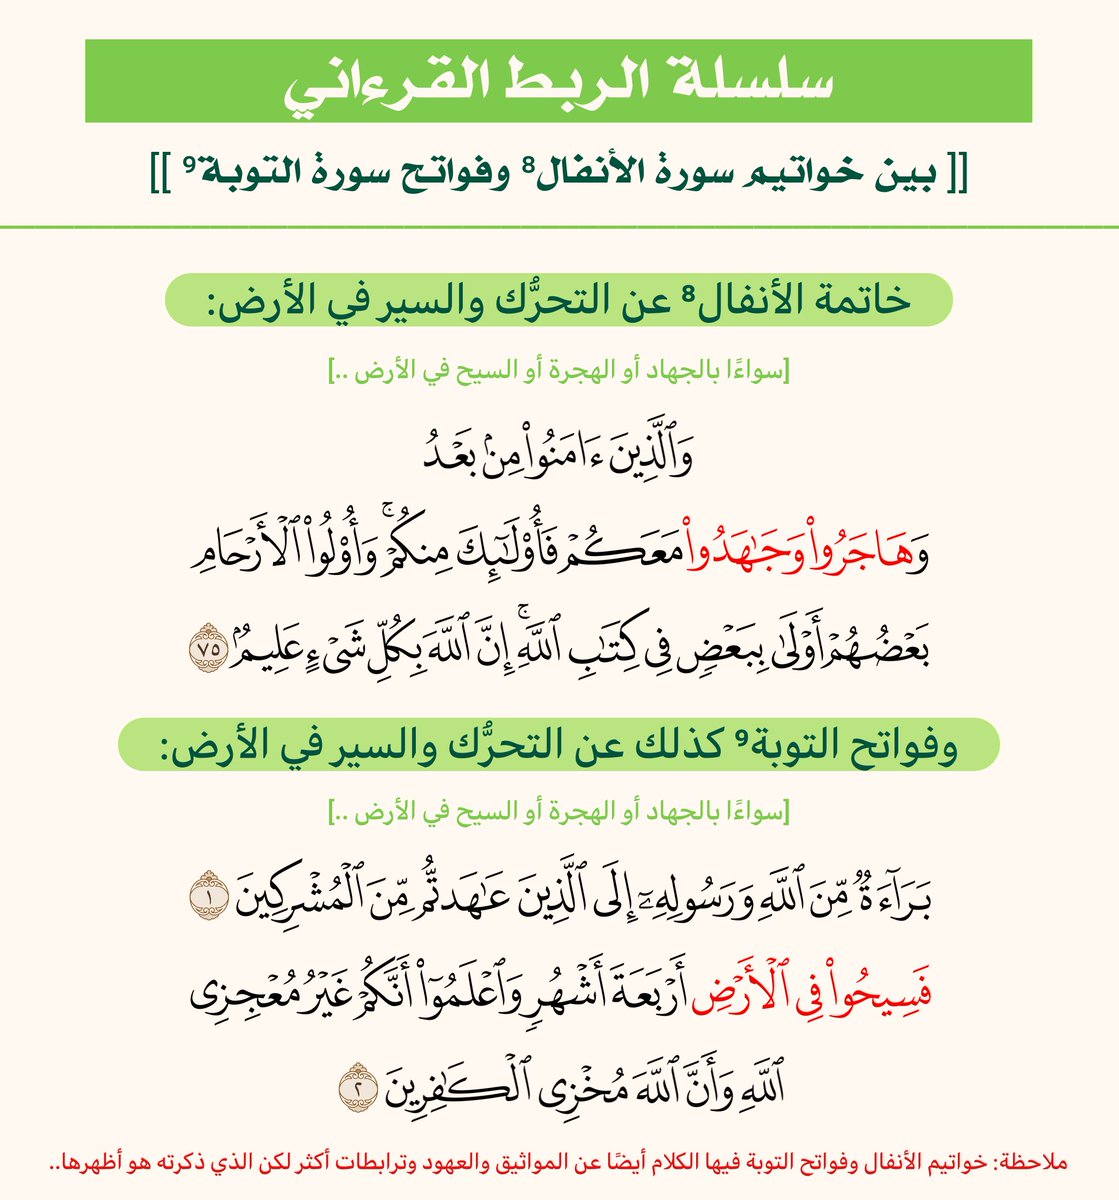 سلسلة الربط القرءاني
[[ بين خواتيم سورة الأنفال⁸ وفواتح سورة التوبة⁹ ]]
خاتمة الأنفال⁸ عن التحرُّك والسير في الأرض:
[سواءًا بالجهاد أو الهجرة أو السيح في الأرض ..]
وَٱلَّذِينَ ءَامَنُوا۟ مِنۢ بَعْدُ
وَهَاجَرُوا۟ وَجَـٰهَدُوا۟ مَعَكُمْ فَأُو۟لَـٰٓئِكَ مِنكُمْ ۚ وَأُو۟لُوا۟ ٱلْأَرْحَامِ
بَعْضُهُمْ أَوْلَىٰ بِبَعْضٍ فِى كِتَـٰبِ ٱللَّهِ ۚ إِنَّ ٱللَّهَ بِكُلِّ شَىْءٍ عَلِيمٌۢ ٧٥
وفواتح التوبة⁹ كذلك عن التحرُّك والسير في الأرض:
[سواءًا بالجهاد أو الهجرة أو السيح في الأرض ..]
بَرَآءَةٌ مِّنَ ٱللَّهِ وَرَسُولِهِۦٓ إِلَى ٱلَّذِينَ عَـٰهَدتُّم مِّنَ ٱلْمُشْرِكِينَ ١
فَسِيحُوا۟ فِى ٱلْأَرْضِ أَرْبَعَةَ أَشْهُرٍ وَٱعْلَمُوٓا۟ أَنَّكُمْ غَيْرُ مُعْجِزِى
ٱللَّهِ وَأَنَّ ٱللَّهَ مُخْزِى ٱلْكَـٰفِرِينَ ٢
ملاحظة: خواتيم الأنفال وفواتح التوبة فيها الكلام أيضًا عن المواثيق والعهود وترابطات أكثر لكن الذي ذكرته هو أظهرها..